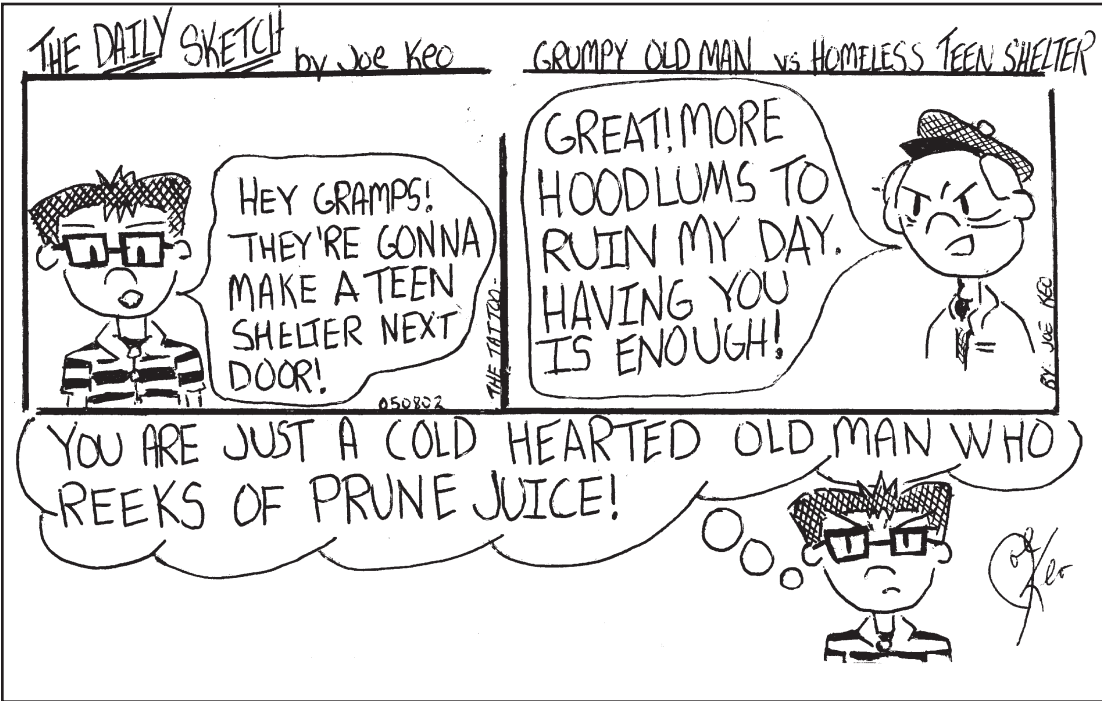 THE DAILY SKETCH by Joe Keo
GRUMPY OLD MAN vs HOMELESS TEEN SHELTER
HEY GRAMPS!
THEY'RE GONNA
MAKE A TEEN
SHELTER NEXT
DOOR!
050802
THE TATTOO-
GREAT! MORE
HOODLUMS TO
RUIN MY DAY.
HAVING YOU
IS ENOUGH!
BY: JOE KEO
YOU ARE JUST A COLD HEARTED OLD MAN WHO
REEKS OF PRUNE JUICE!
Joe
Keo